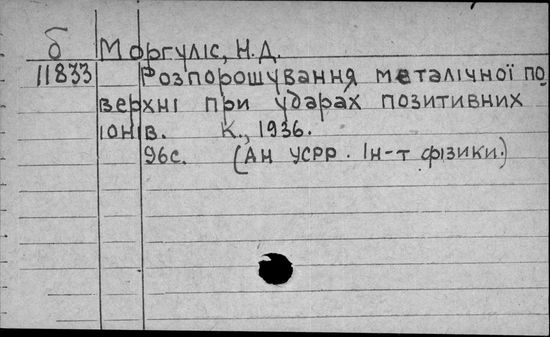 б Моргуліс, Н.Д.
11833 Розпорошування металічної по
верхні при ударах позитивних
іонів. К., 1936.
96с. (Ан УСРР. Ін-т фізики.)